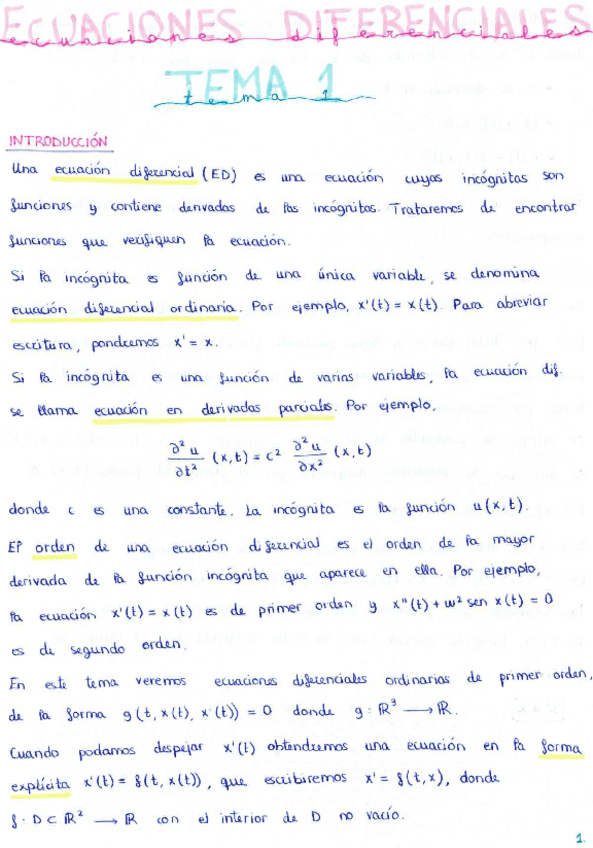 ECUACIONES DIFERENCIALES
ecuaciones diferenciales
TEMA 1
tema 1
INTRODUCCIÓN
Una ecuación diferencial (ED) es una ecuación cuyas incógnitas son
funciones y contiene derivadas de las incógnitas. Trataremos de encontrar
funciones que verifiquen la ecuación.
Si la incógnita es función de una única variable, se denomina
ecuación diferencial ordinaria. Por ejemplo, x'(t) = x(t). Para abreviar
escritura, pondremos x' = x.
Si la incógnita es una función de varias variables, la ecuación dif.
se llama ecuación en derivadas parciales. Por ejemplo,
∂²u/∂t² (x,t) = c² ∂²u/∂x² (x,t)
donde c es una constante. La incógnita es la función u(x,t).
El orden de una ecuación diferencial es el orden de la mayor
derivada de la función incógnita que aparece en ella. Por ejemplo,
la ecuación x'(t) = x(t) es de primer orden y x''(t) + w² sen x(t) = 0
es de segundo orden.
En este tema veremos ecuaciones diferenciales ordinarias de primer orden,
de la forma g(t, x(t), x'(t)) = 0 donde g: ℝ³ → ℝ.
Cuando podamos despejar x'(t) obtendremos una ecuación en la forma
explícita x'(t) = f(t, x(t)), que escribiremos x' = f(t,x), donde
f: D ⊂ ℝ² → ℝ con el interior de D no vacío.
1.